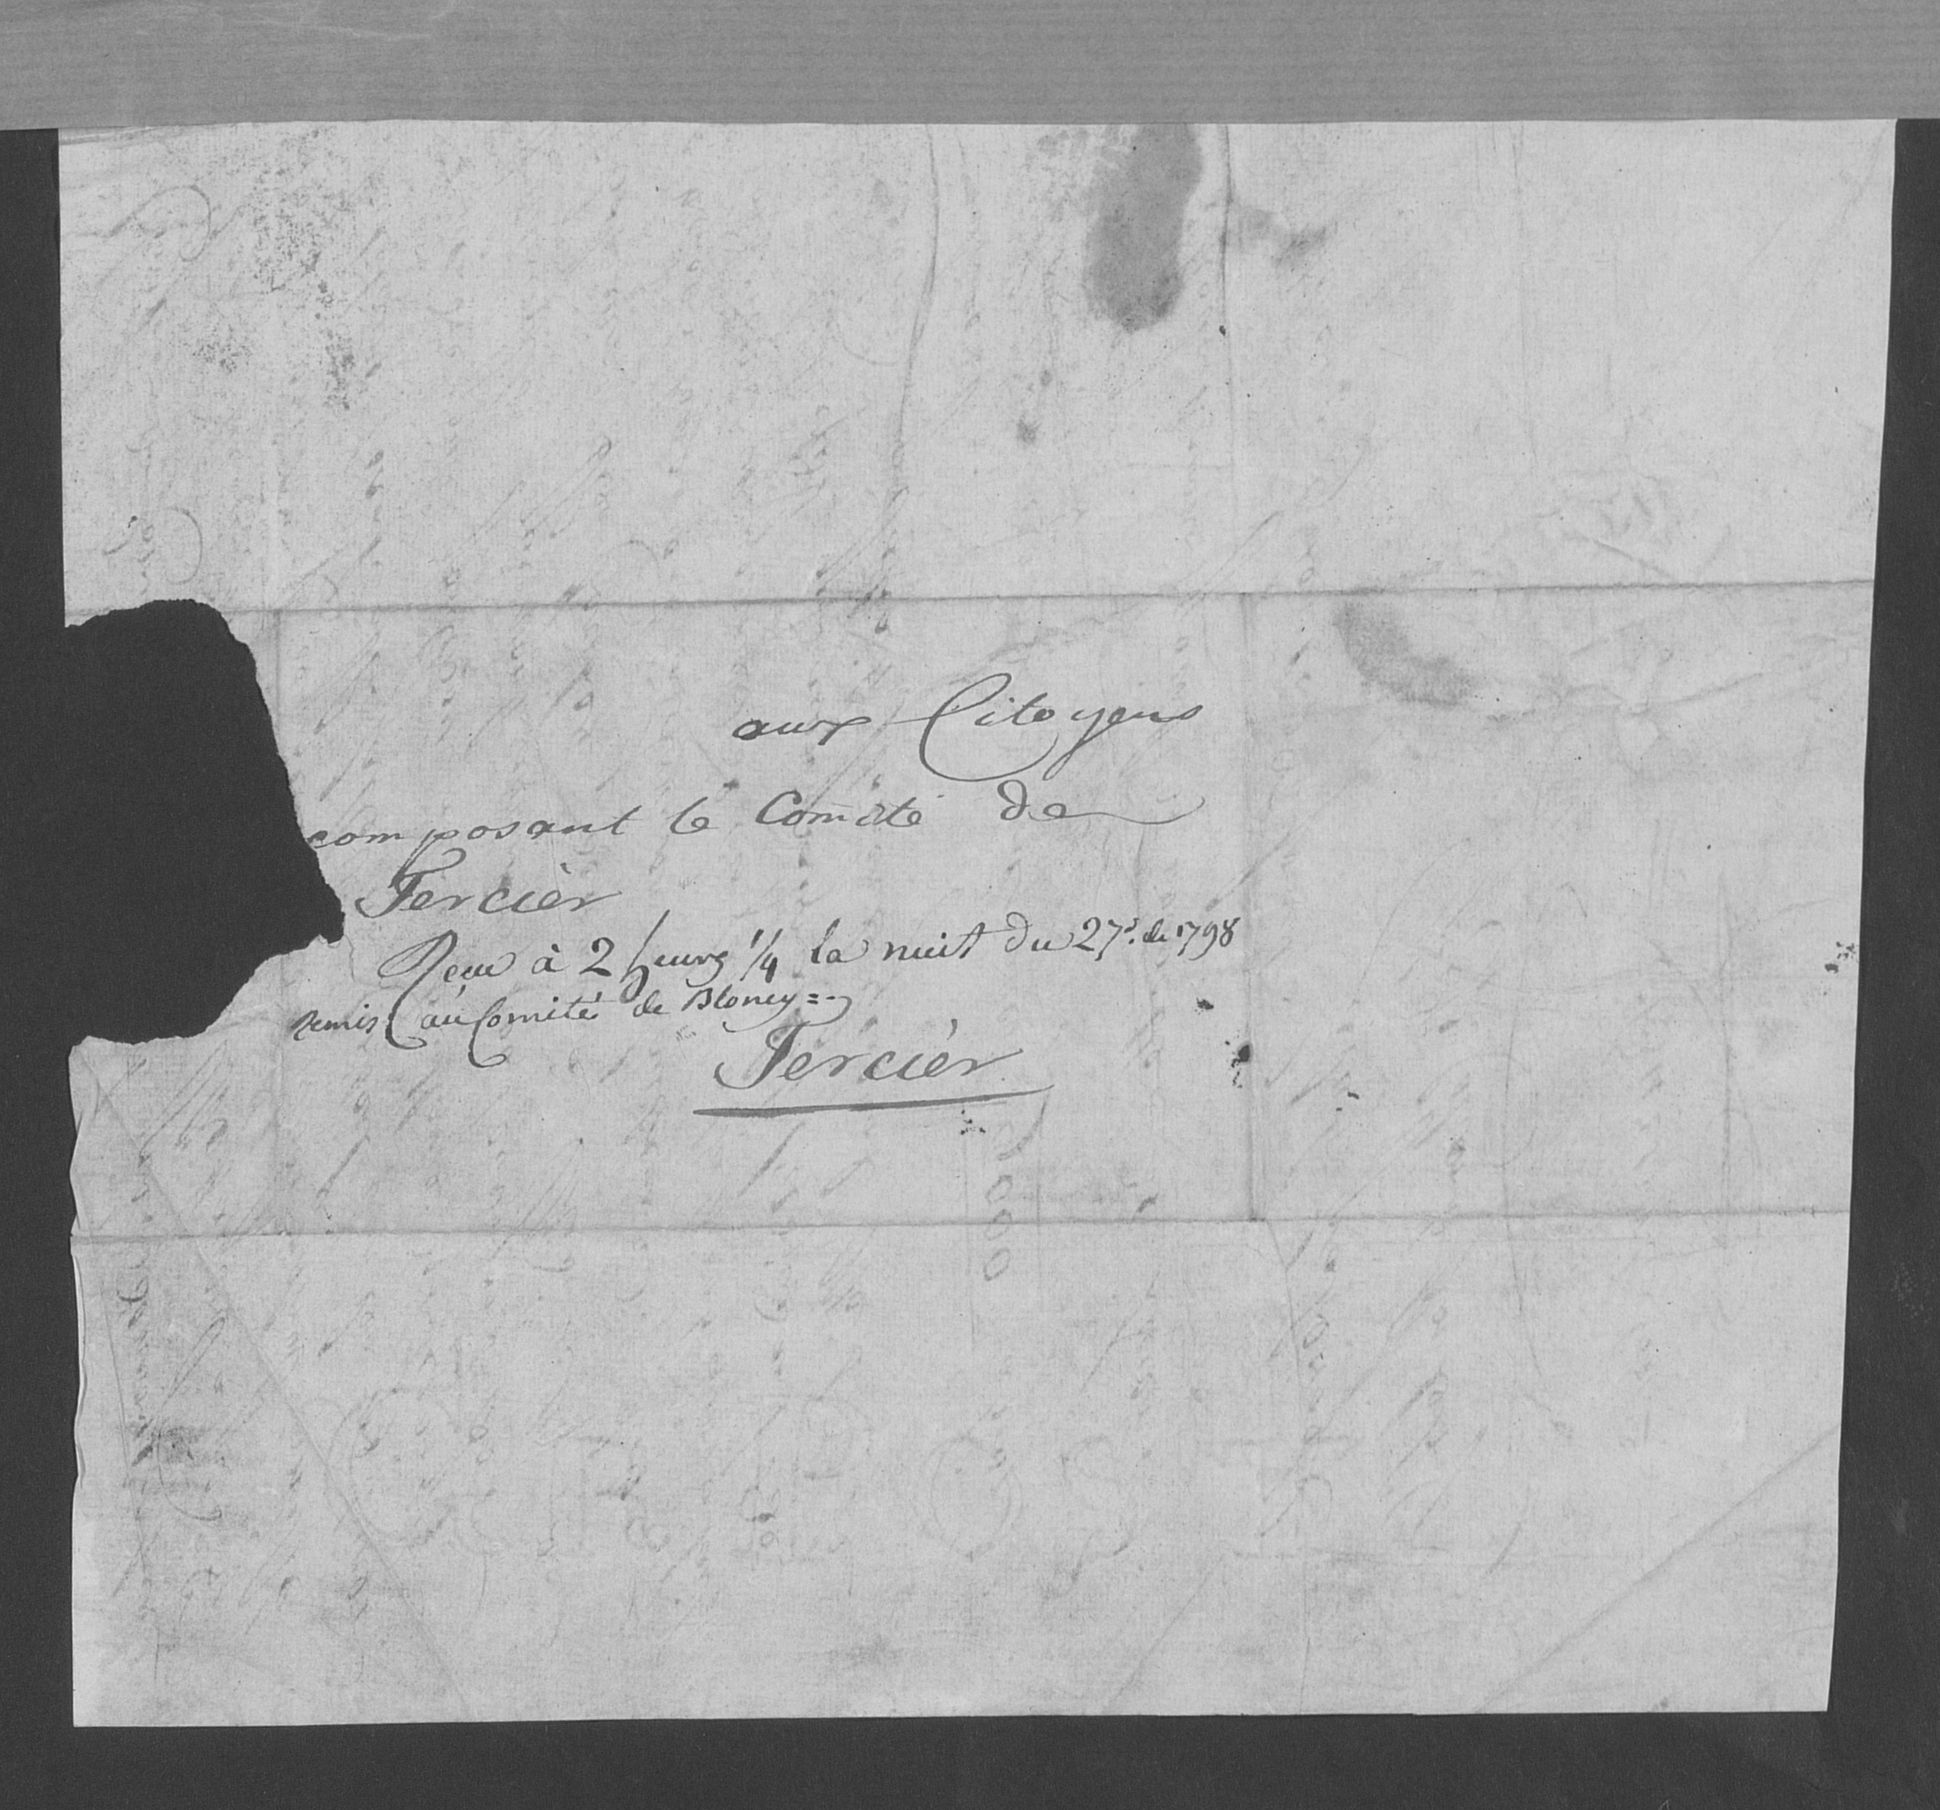 aux Citoyens
composant le Comité de
Tercièr
Reçu à 2 heures 1/4 la nuit du 27e. de 1798
remis au Comité de Bloney =
Tercièr